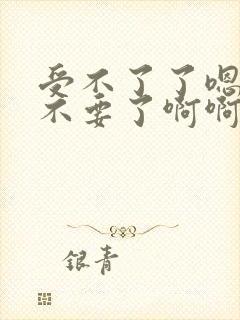 受不了了嗯
不要了啊啊
银青